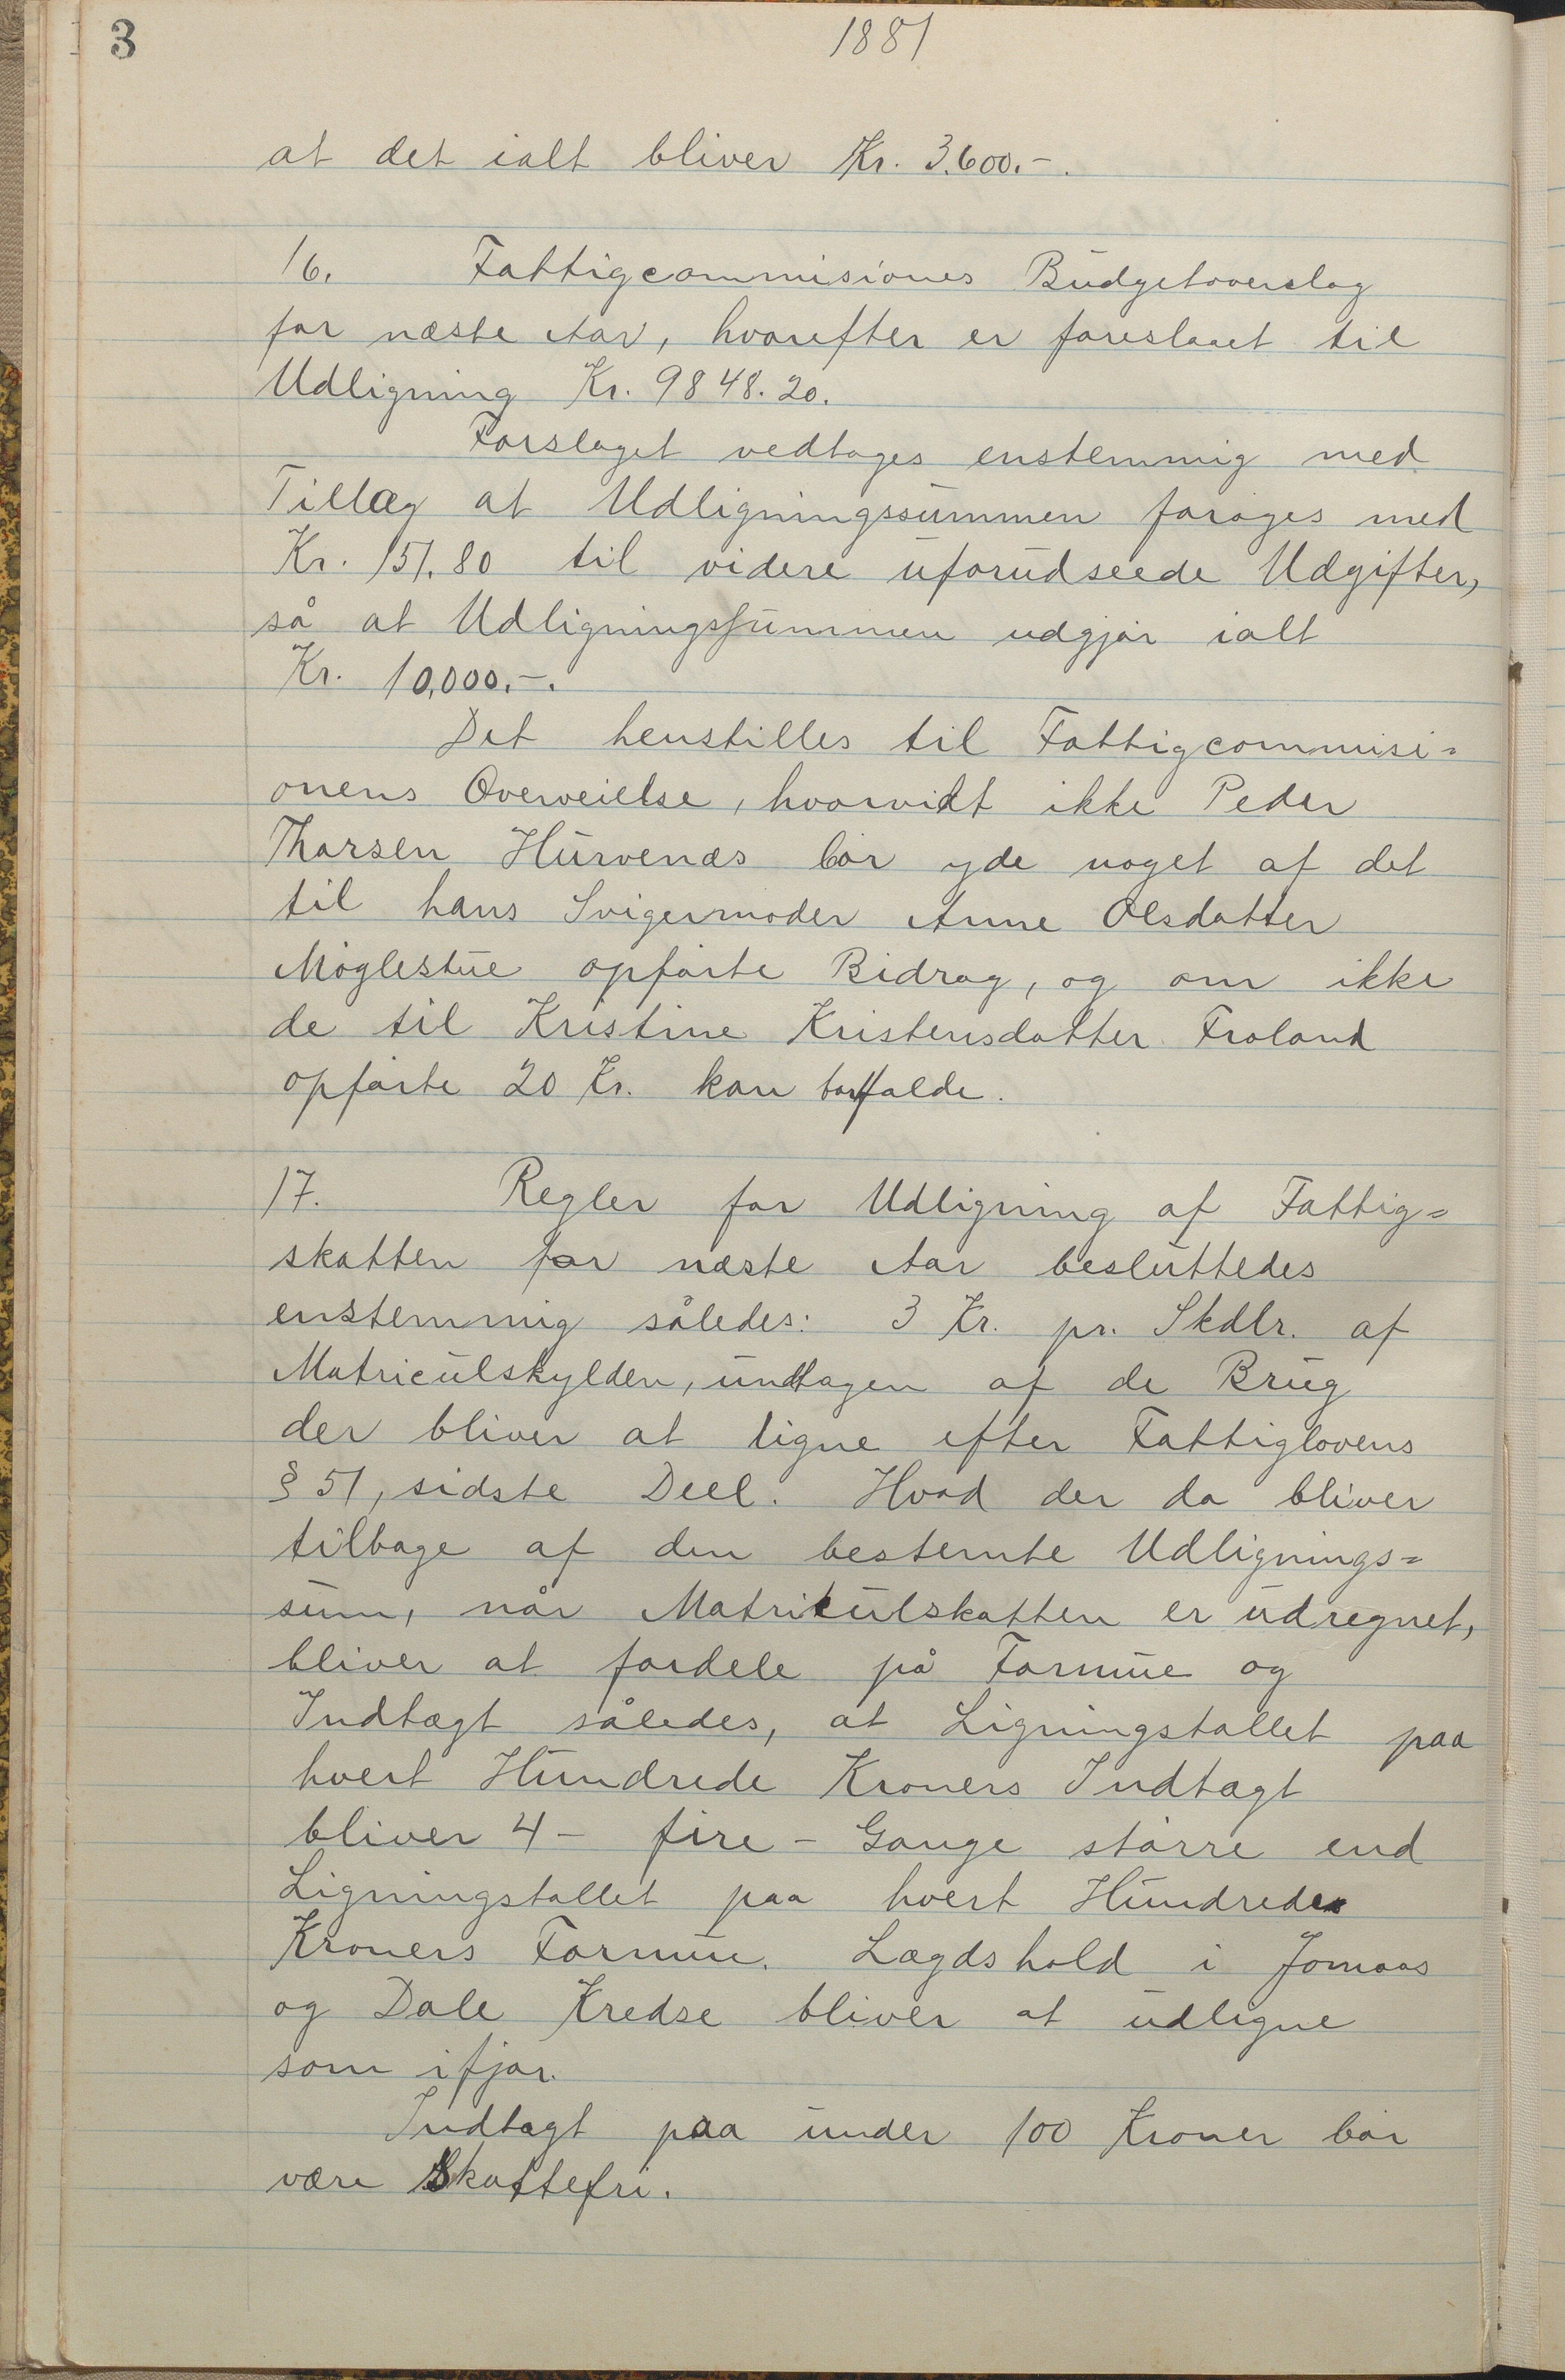 3
1881
at det ialt bliver Kr. 3.600.-.
16. Fattigcommisiones Budgetoverslag
for næste Aar, hvorefter er foreslaaet til
Udligning Kr. 9848.20.
Forslaget vedtages enstemmig med
Tillæg at Udligningssummen forøges med
Kr. 151.80 til videre uforudseede Udgifter,
så at Udligningssummen udgjør ialt
Kr. 10,000.-.
Det henstilles til Fattigcommisi=
onens Overveielse, hvorvidt ikke Peder
Thorsen Hurvenæs bør yde noget af det
til hans Svigermoder Anne Olsdatter
Møglestue opførte Bidrag, og om ikke
de til Kristine Kristensdatter Froland
opførte 20 Kr. kan bortfalde.
17. Regler for Udligning af Fattig=
skatten for næste Aar besluttedes
enstemmig således: 3 Kr. pr. Skdlr. af
Matriculskylden, undtagen af de Brug
der bliver at ligne efter Fattiglovens
§ 51, sidste Deel. Hvad der da bliver
tilbage af den bestemte Udlignings=
sum, når Matrikulskatten er udregnet,
bliver at fordele på Formue og
Indtægt således, at Ligningstallet paa
hvert Hundrede Kroners Indtægt
bliver 4 - fire - Gange større end
Ligningstallet paa hvert Hundrede
Kroners Formue. Lægdshold i Jomaas
og Dale Kredse bliver at udligne
som ifjor.
Indtægt paa under 100 Kroner bør
være Skattefri.